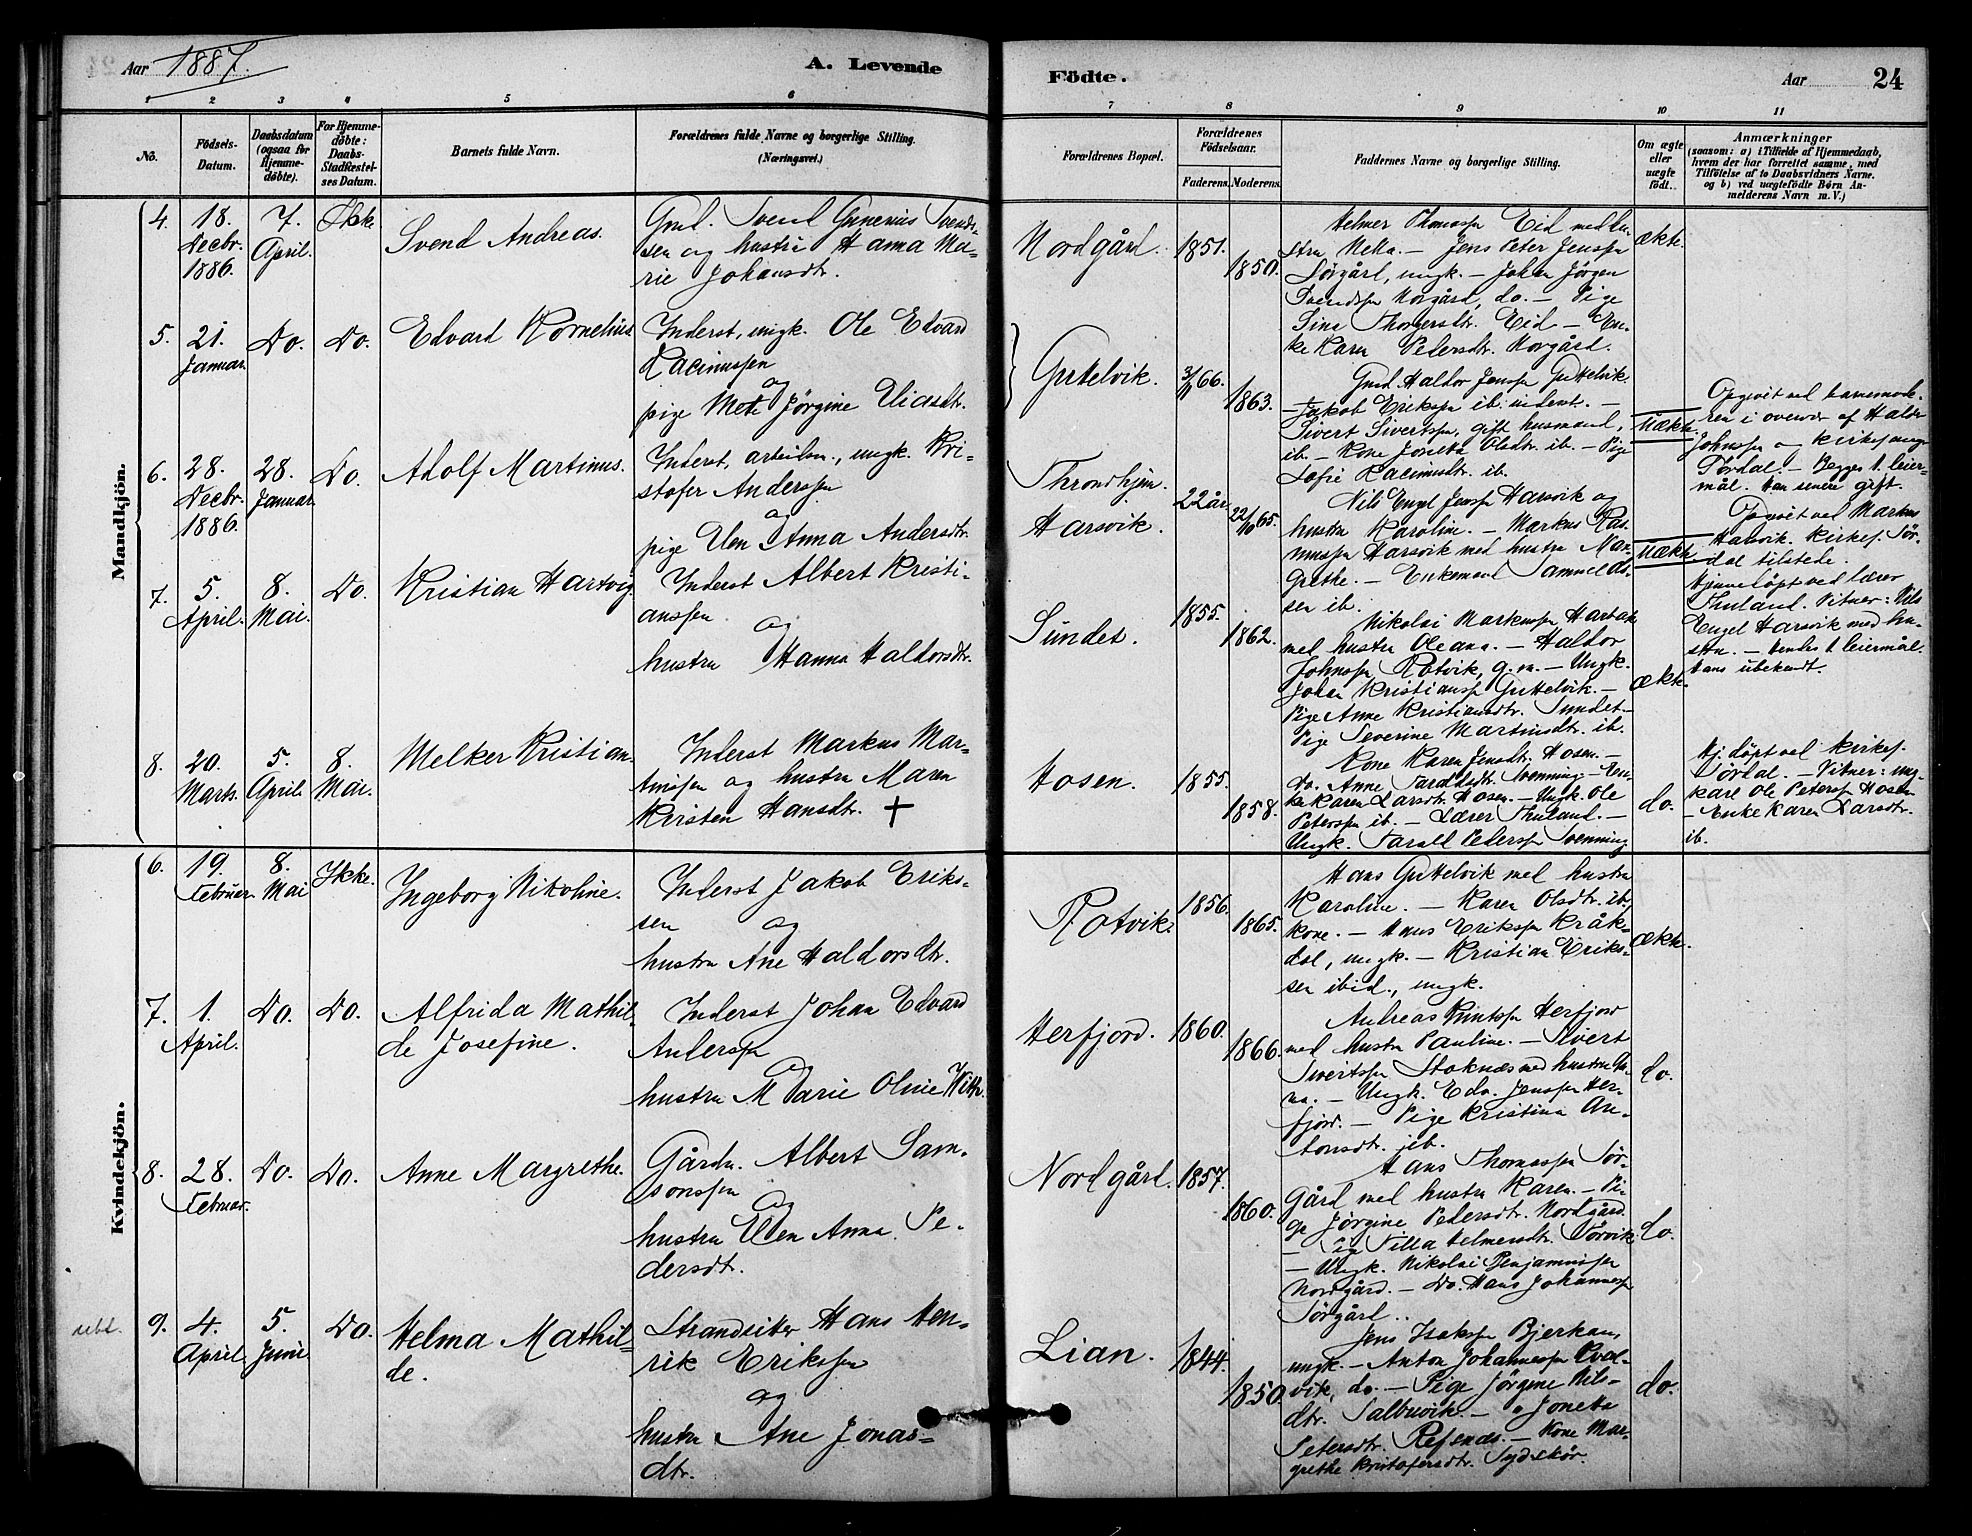 Aar 1887.
A. Levende
Födte.
Aar
24
1
2
3
4
5
6
7
8
9
10
11
No.
Födsels-
Datum.
Daabsdatum
(ogsaa for
Hjemme-
döbte).
For Hjemme-
döbte:
Daabs-
Stadfæstel-
ses Datum.
Barnets fulde Navn.
Forældrenes fulde Navne og borgerlige Stilling.
(Næringsvei.)
Forældrenes Bopæl.
Forældrenes
Födselsaar.
Faderens.
Moderens.
Faddernes Navne og borgerlige Stilling.
Om ægte
eller
uægte
födt.
Anmærkninger
(saasom: a) i Tilfælde af Hjemmedaab,
hvem der har forrettet samme, med
Tilföielse af to Daabsvidners Navne.
og b) ved uægtefödte Börn An-
melderens Navn m. V.)
Mandkjön.
4.
18.
Decbr.
1886.
7.
April.
Ikke
Svend Andreas.
Gmd. Svend Gunerius Svend-
sen og hustru Hanna Ma-
rie Johansdtr.
Nordgård.
1851.
1850.
Helmer Thomassen Eid med hu-
stru Mella. — Jens Peter Jenssen
Sörgård, ungk. — Johan Jörgen
Svendssen Norgård, do. — Pige
Sina Thorgersdtr. Eid — En-
ke Karen Pedersdtr. Norgård.
ækte.
5.
21.
Januar.
Do.
Do.
Edvard Kornelius
Inderst, ungk. Ole Edvard
Racinussen
og
pige Mete Jörgine Eliasdtr.
Guttelvik.
3/11 66.
1863.
Gmd. Haldor Jenssen Guttelvik.
— Jakob Erikssen ib. inderst. —
Sivert Sivertssen, gift husmand,
ib. — Kone Joneta Olsdtr. ib. — Pige
Sofie Racinusdtr. ib.
uækte
Opgivet ved barnemode-
ren i overvær af Haldor
Johnssen og kirkesanger
Sördal. — Begges 1. leier-
mål. Han senere gift.
6.
28.
Decbr.
1886.
28.
Januar.
Do.
Adolf Martinus.
Inderst, arbeidsm., ungk. Kri-
stofer Anderssen
og
pige Elen Anna Andersdtr.
Throndhjem.
Harsvik.
22 år
22/10 65.
Nils Engel Jenssen Harsvik og
hustru Karoline. — Markus Ras-
mussen Harsvik med hustru Mar-
grethe. — Enkemand Samuel Ols-
sen ib.
uækte
Opgivet ved Markus
Harsvik. Kirkes. Sör-
dal tilstede.
Hjemmedöpt ved lærer
Thuland. Vitner: Nils
Engel Harsvik med hu-
stru. — Hendes 1. leiermål.
Hans ubekendt.
7.
5.
April.
8.
Mai.
Do.
Kristian Hartvig
Inderst Albert Kristi-
anssen
og
hustru Hanna Haldorsdtr.
Sundet.
1855.
1862.
Nikolai Markussen Harbak
med hustru Oleana. — Haldor
Johnssen Ratvik, g. m. — Ungk.
Johan Kristianssen Guttelvik. —
Pige Anne Kristiansdtr. Sundet —
Pige Severine Martinsdtr. ib.
ækte.
8.
20.
Marts.
5.
April
8.
Mai.
Melker Kristian.
Inderst Markus Mar-
tinssen og hustru Maren
Kirsten Hansdtr. +
Hosen.
1855.
1858.
Kone Karen Jensdtr. Hosen. —
do. Anne Taraldsdtr. Svenning — En-
ke Karen Larsdtr. Hosen. — Ungk. Ole
Peterssen ib. — Lærer Thuland. —
Ungk. Tarall Peterssen Svenning
do.
Hj. döpt ved kirkes.
Sördal. — Vitner: ung-
karl Ole Peterssen Hosen
— Enke Karen Larsdtr.
ib.
Kvindekjön.
6.
19.
Februar
8.
Mai
Ikke.
Ingeborg Nikoline.
Inderst Jakob Eriks-
sen og
hustru Ane Haldorsdtr.
Ratvik.
1856.
1865.
Hans Guttelvik med hustru
Karoline. — Karen Olsdtr. ib.
kone. — Hans Erikssen Kråk-
dal, ungk. — Kristian Eriks-
sen ibid., ungk.
ækte.
7.
1.
April.
Do.
Do.
Alfrida Mathil-
de Josefine.
Inderst Johan Edvard
Anderssen
og
hustru Marie Oline Witt.
Herfjord.
1860.
1866.
Andreas Knutssen Herfjord
med hustru Pauline. — Sivert
Sivertssen Stoknes med hustru An-
na. — Ungk. Edv. Jenssen Her-
fjord. — Pige Kristina An-
tonsdtr. ib.
do.
8.
28.
Februar.
Do.
Do.
Anne Margrethe.
Gårdm. Albert Sam-
sonssen
og
hustru Elen Anna Pe-
dersdt.
Nordgård.
1857.
1860.
Hans Thomassen Sör-
gård med hustru Karen. — Pi-
ge Jörgine Pedersdtr. Nordgård
— Pige Silla Helmersdtr. Sörvik.
— Ungk. Nikolai Benjaminssen
Nordgård. — Do. Hans Johannessen
Sörgård.
do.
9.
4.
April
5.
Juni
Do.
Helma Mathil-
de.
Strandsitter Hans Hen-
rik Erikssen
og
hustru Ane Jonas-
dtr.
Lian.
1844.
1850.
Jens Isakssen Bjerkan,
ungk. — Anton Johannessen Kval-
vik, do. — Pige Jörgine Nils-
dtr. Talbuvik. — " Joneta
Petersdtr. Refsnes. — Kone Mar-
grethe Kristofersdtr. Sydskör.
do.